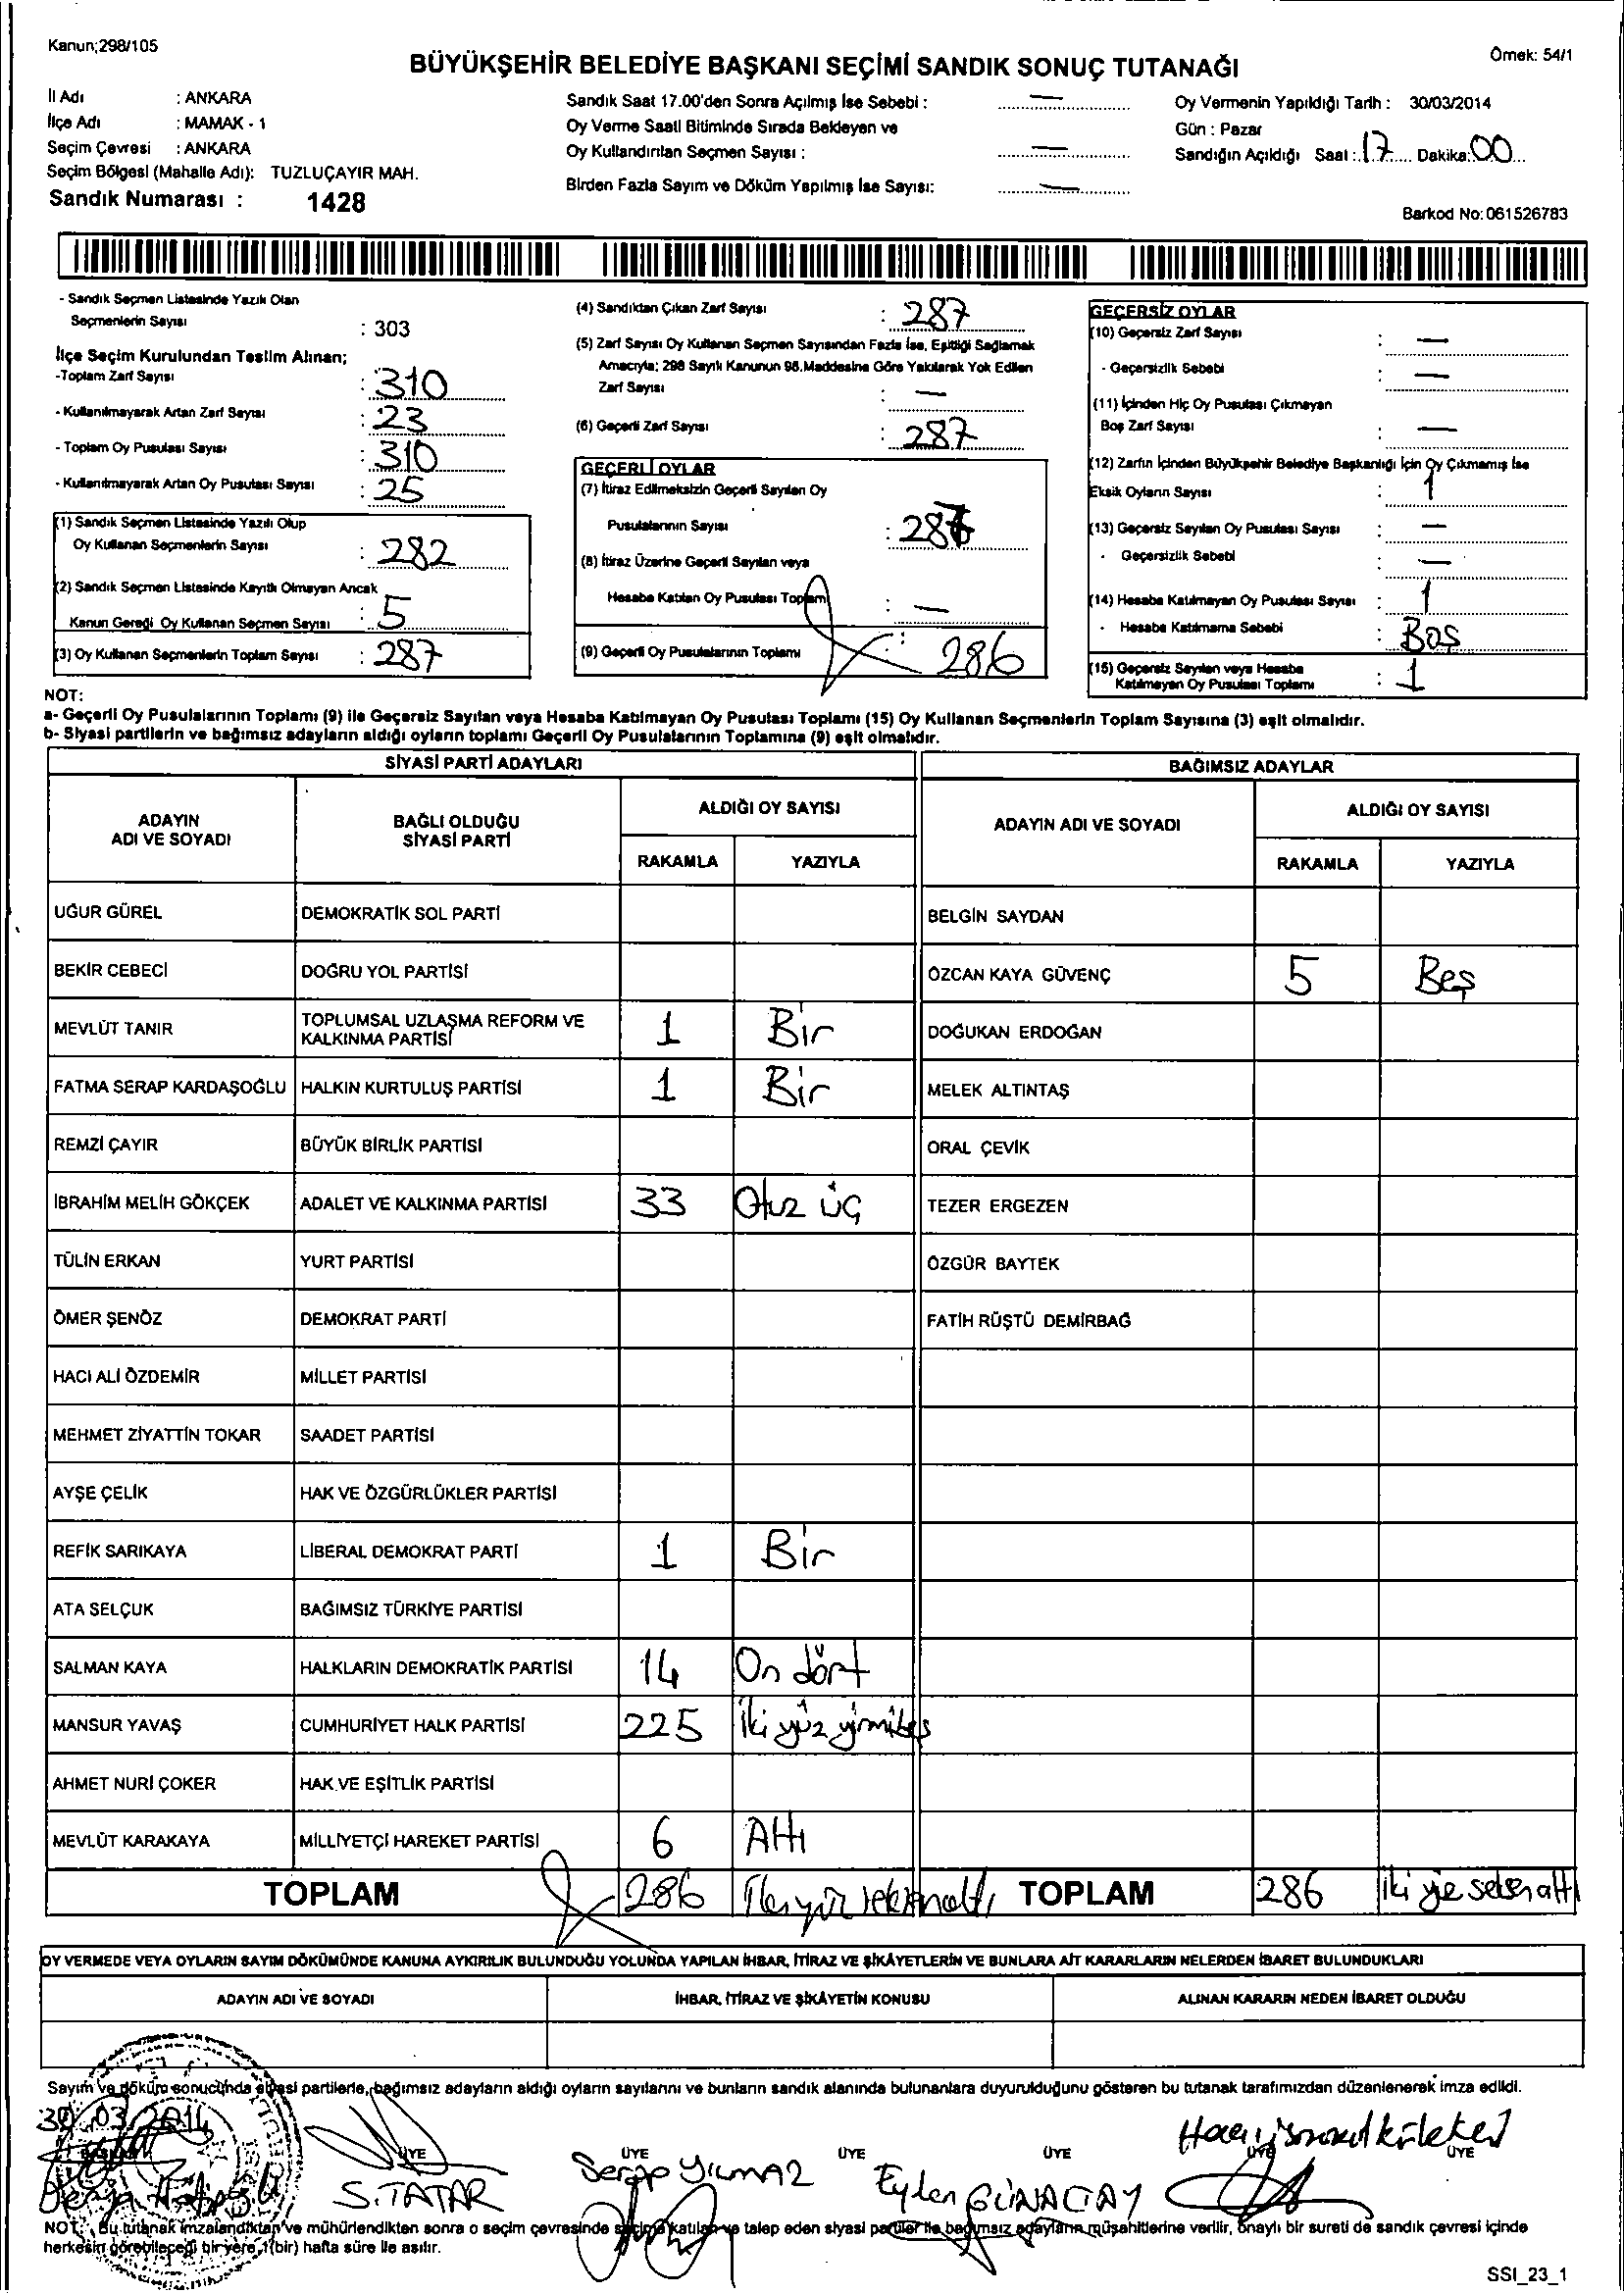 Kanun;298/105
Örnek: 54/1
BÜYÜKŞEHİR BELEDİYE BAŞKANI SEÇİMİ SANDIK SONUÇ TUTANAĞI
İl Adı : ANKARA
İlçe Adı : MAMAK - 1
Seçim Çevresi : ANKARA
Seçim Bölgesi (Mahalle Adı): TUZLUÇAYIR MAH.
Sandık Numarası : 1428
Sandık Saat 17.00'den Sonra Açılmış İse Sebebi : —
Oy Verme Saati Bitiminde Sırada Bekleyen ve
Oy Kullandırılan Seçmen Sayısı : —
Birden Fazla Sayım ve Döküm Yapılmış İse Sayısı: —
Oy Vermenin Yapıldığı Tarih : 30/03/2014
Gün : Pazar
Sandığın Açıldığı Saat : 17 Dakika: 00
Barkod No: 061526783
- Sandık Seçmen Listesinde Yazılı Olan
Seçmenlerin Sayısı : 303
İlçe Seçim Kurulundan Teslim Alınan;
-Toplam Zarf Sayısı : 310
- Kullanılmayarak Artan Zarf Sayısı : 23
- Toplam Oy Pusulası Sayısı : 310
- Kullanılmayarak Artan Oy Pusulası Sayısı : 25
(1) Sandık Seçmen Listesinde Yazılı Olup
Oy Kullanan Seçmenlerin Sayısı : 282
(2) Sandık Seçmen Listesinde Kayıtlı Olmayan Ancak
Kanun Gereği Oy Kullanan Seçmen Sayısı : 5
(3) Oy Kullanan Seçmenlerin Toplam Sayısı : 287
(4) Sandıktan Çıkan Zarf Sayısı : 287
(5) Zarf Sayısı Oy Kullanan Seçmen Sayısından Fazla İse, Eşitliği Sağlamak
Amacıyla; 298 Sayılı Kanunun 98.Maddesine Göre Yakılarak Yok Edilen
Zarf Sayısı : —
(6) Geçerli Zarf Sayısı : 287
GEÇERLİ OYLAR
(7) İtiraz Edilmeksizin Geçerli Sayılan Oy
Pusulalarının Sayısı : 286
(8) İtiraz Üzerine Geçerli Sayılan veya
Hesaba Katılan Oy Pusulası Toplamı : —
(9) Geçerli Oy Pusulalarının Toplamı : 286
GEÇERSİZ OYLAR
(10) Geçersiz Zarf Sayısı : —
- Geçersizlik Sebebi : —
(11) İçinden Hiç Oy Pusulası Çıkmayan
Boş Zarf Sayısı : —
(12) Zarfın İçinden Büyükşehir Belediye Başkanlığı İçin Oy Çıkmamış İse
Eksik Oyların Sayısı : 1
(13) Geçersiz Sayılan Oy Pusulası Sayısı : —
- Geçersizlik Sebebi : —
(14) Hesaba Katılmayan Oy Pusulası Sayısı : 1
- Hesaba Katılmama Sebebi : Boş
(15) Geçersiz Sayılan veya Hesaba
Katılmayan Oy Pusulası Toplamı : 1
NOT:
a- Geçerli Oy Pusulalarının Toplamı (9) ile Geçersiz Sayılan veya Hesaba Katılmayan Oy Pusulası Toplamı (15) Oy Kullanan Seçmenlerin Toplam Sayısına (3) eşit olmalıdır.
b- Siyasi partilerin ve bağımsız adayların aldığı oyların toplamı Geçerli Oy Pusulalarının Toplamına (9) eşit olmalıdır.
SİYASİ PARTİ ADAYLARI
BAĞIMSIZ ADAYLAR
ADAYIN ADI VE SOYADI
BAĞLI OLDUĞU SİYASİ PARTİ
ALDIĞI OY SAYISI
RAKAMLA YAZIYLA
ADAYIN ADI VE SOYADI
ALDIĞI OY SAYISI
RAKAMLA YAZIYLA
UĞUR GÜREL DEMOKRATİK SOL PARTİ BELGİN SAYDAN
BEKİR CEBECİ DOĞRU YOL PARTİSİ ÖZCAN KAYA GÜVENÇ 5 Beş
MEVLÜT TANIR TOPLUMSAL UZLAŞMA REFORM VE KALKINMA PARTİSİ 1 Bir DOĞUKAN ERDOĞAN
FATMA SERAP KARDAŞOĞLU HALKIN KURTULUŞ PARTİSİ 1 Bir MELEK ALTINTAŞ
REMZİ ÇAYIR BÜYÜK BİRLİK PARTİSİ ORAL ÇEVİK
İBRAHİM MELİH GÖKÇEK ADALET VE KALKINMA PARTİSİ 33 Otuz üç TEZER ERGEZEN
TÜLİN ERKAN YURT PARTİSİ ÖZGÜR BAYTEK
ÖMER ŞENÖZ DEMOKRAT PARTİ FATİH RÜŞTÜ DEMİRBAĞ
HACI ALİ ÖZDEMİR MİLLET PARTİSİ
MEHMET ZİYATTİN TOKAR SAADET PARTİSİ
AYŞE ÇELİK HAK VE ÖZGÜRLÜKLER PARTİSİ
REFİK SARIKAYA LİBERAL DEMOKRAT PARTİ 1 Bir
ATA SELÇUK BAĞIMSIZ TÜRKİYE PARTİSİ
SALMAN KAYA HALKLARIN DEMOKRATİK PARTİSİ 14 On dört
MANSUR YAVAŞ CUMHURİYET HALK PARTİSİ 225 İki yüz yirmibeş
AHMET NURİ ÇOKER HAK VE EŞİTLİK PARTİSİ
MEVLÜT KARAKAYA MİLLİYETÇİ HAREKET PARTİSİ 6 Altı
TOPLAM 286 TOPLAM 286
OY VERMEDE VEYA OYLARIN SAYIM DÖKÜMÜNDE KANUNA AYKIRILIK BULUNDUĞU YOLUNDA YAPILAN İHBAR, İTİRAZ VE ŞİKÂYETLERİN VE BUNLARA AİT KARARLARIN NELERDEN İBARET BULUNDUKLARI
ADAYIN ADI VE SOYADI İHBAR, İTİRAZ VE ŞİKÂYETİN KONUSU ALINAN KARARIN NEDEN İBARET OLDUĞU
Sayım ve döküm sonucunda siyasi partilerle, bağımsız adayların aldığı oyların sayılarını ve bunların sandık alanında bulunanlara duyurulduğunu gösteren bu tutanak tarafımızdan düzenlenerek imza edildi.
30.03.2014
BAŞKAN ÜYE ÜYE ÜYE ÜYE ÜYE ÜYE
S.TATAR Serap YILMAZ Eylen GÜNAÇTAY
NOT: Bu tutanak imzalandıktan ve mühürlendikten sonra o seçim çevresinde seçime katılan ve talep eden siyasi partiler ile bağımsız adayların müşahitlerine verilir, onaylı bir sureti de sandık çevresi içinde
herkesin görebileceği bir yere 1(bir) hafta süre ile asılır.
SSI_23_1